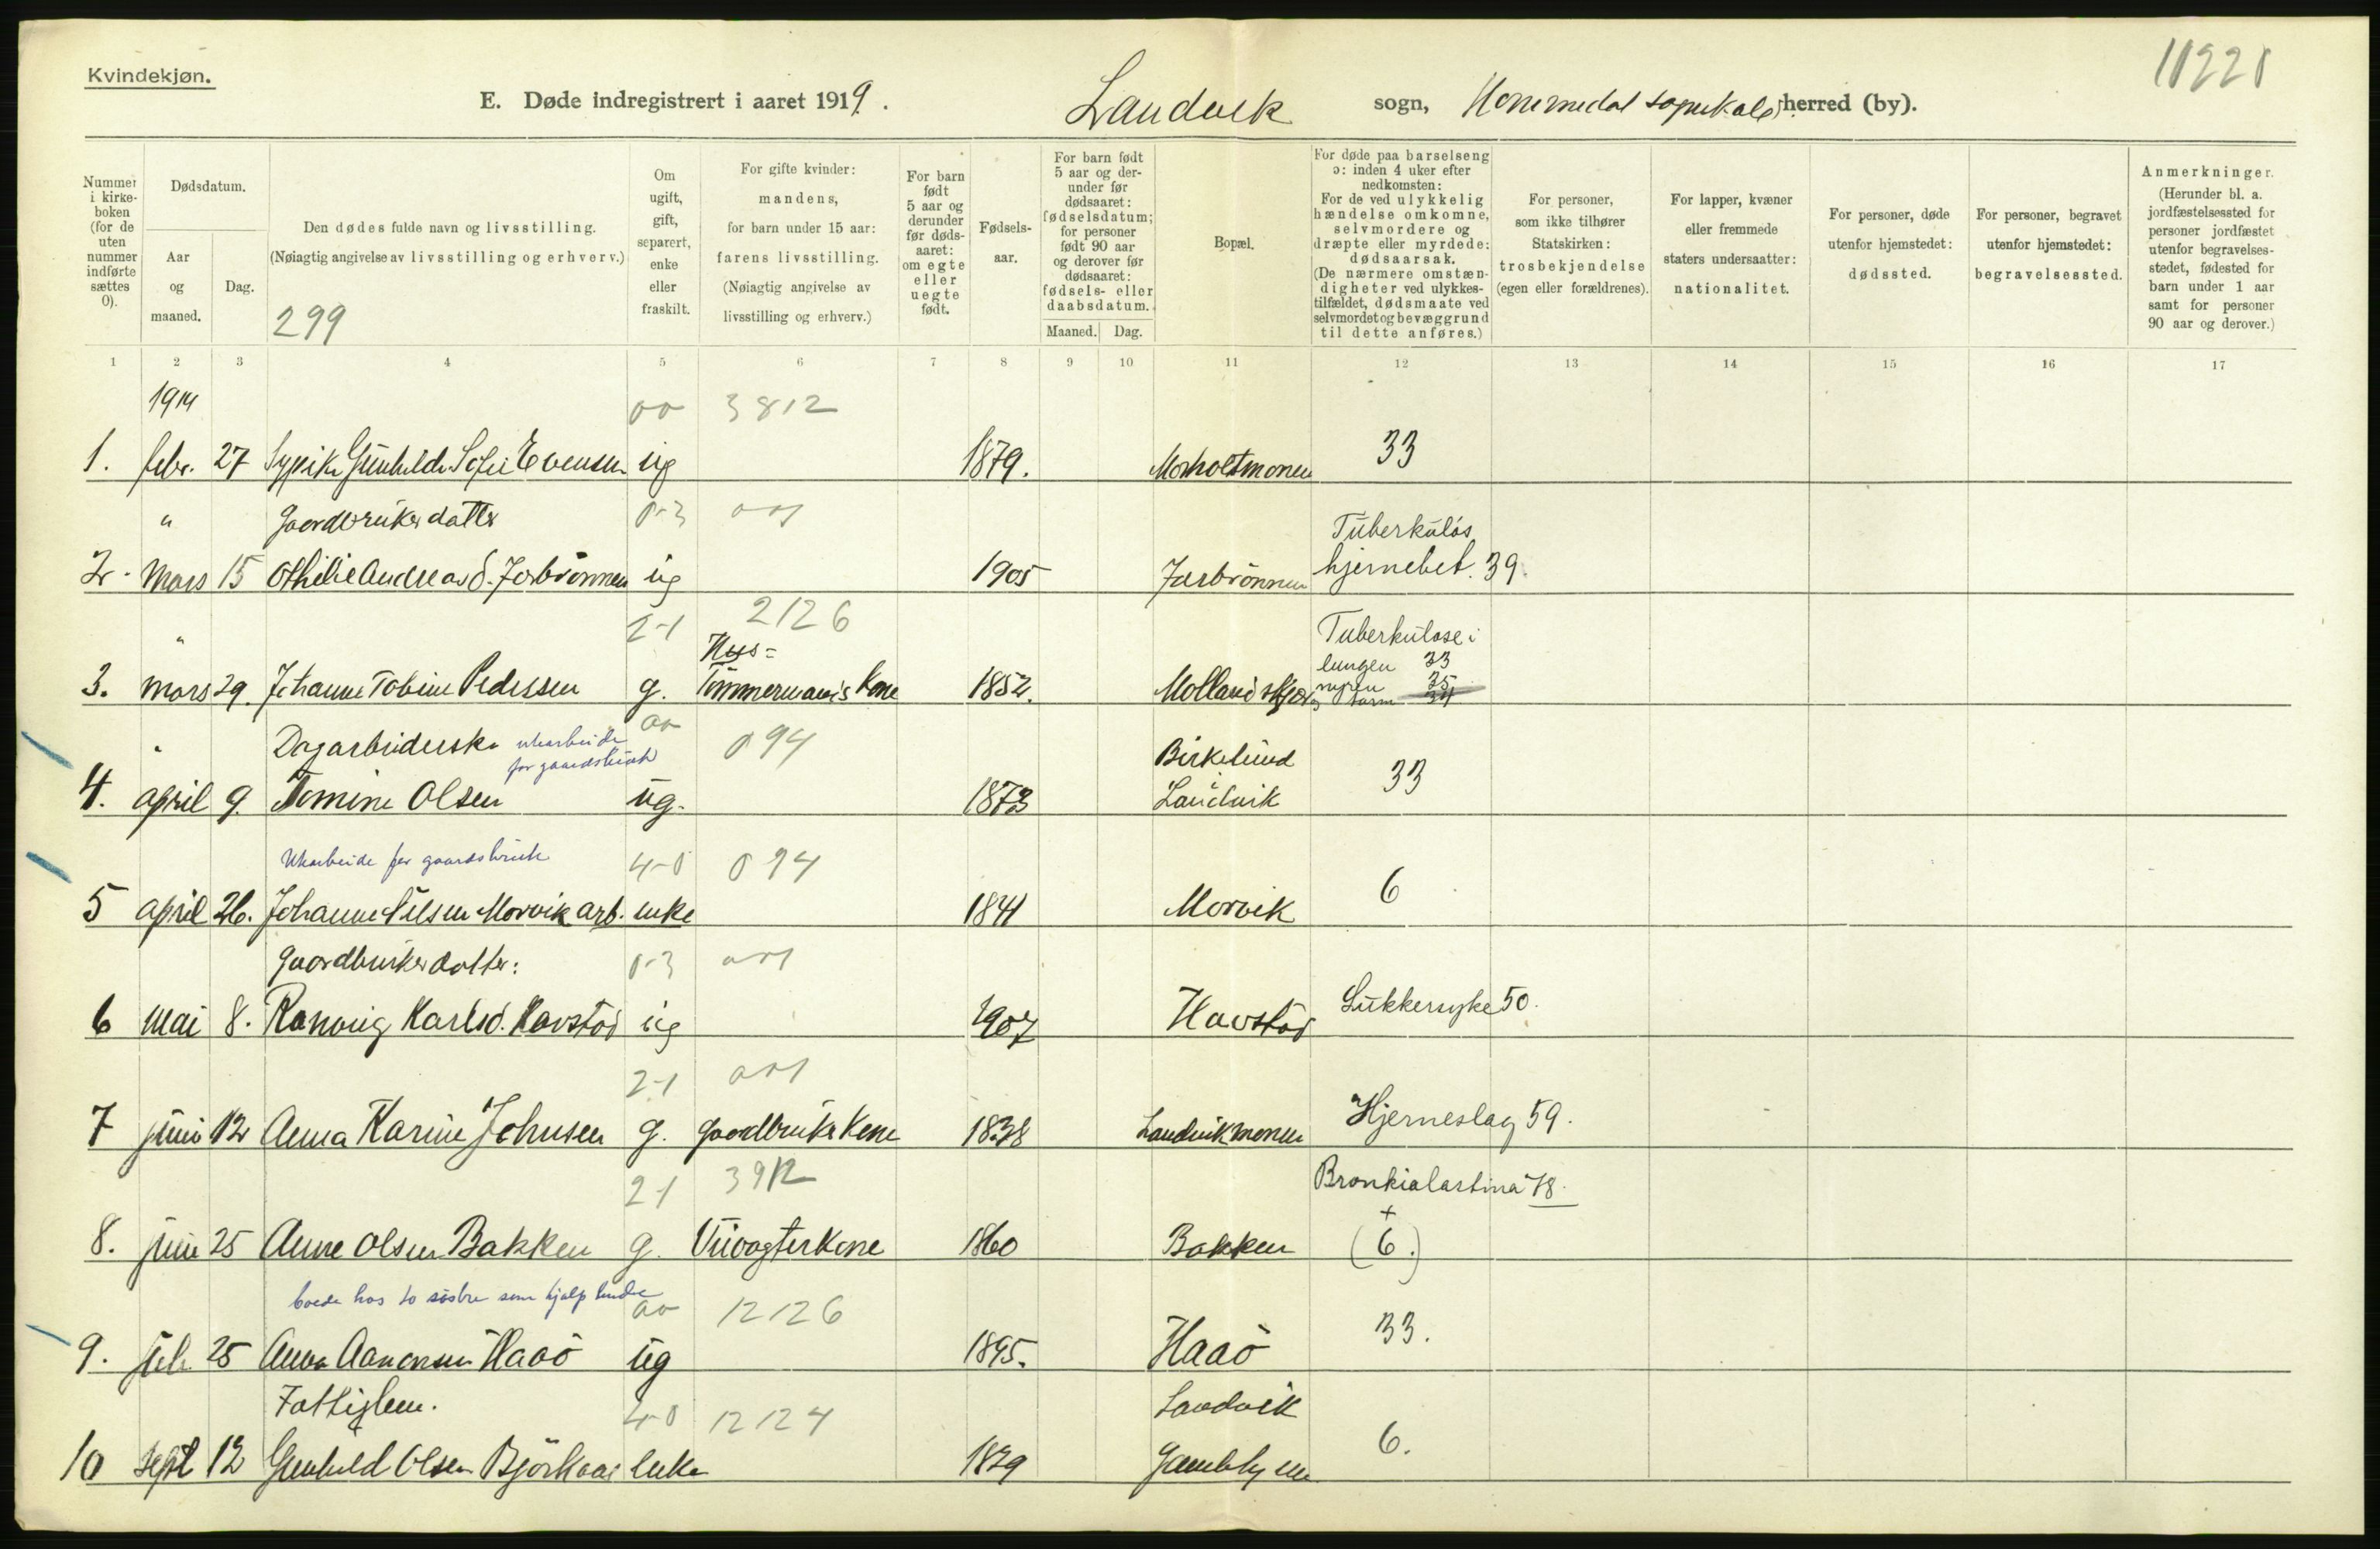 Kvindekjøn.
11221
E. Døde indregistrert i aaret 1919. Landvik sogn, herred (by).
Nummer i kirkeboken (for de uten nummer indførte sættes 0).
Dødsdatum.
Aar og maaned.
Dag.
Den dødes fulde navn og livsstilling.
(Nøiagtig angivelse av livsstilling og erhverv.)
299
Om ugift, gift, separert, enke eller fraskilt.
For gifte kvinder: mandens, for barn under 15 aar: farens livsstilling.
(Nøiagtig angivelse av livsstilling og erhverv.)
For barn født 5 aar og derunder før dødsaaret: om egte eller uegte født.
Fødselsaar.
For barn født 5 aar og derunder før dødsaaret: fødselsdatum; for personer født 90 aar og derover før dødsaaret: fødsels- eller daabsdatum.
Maaned. Dag.
Bopæl.
For døde paa barselseng ɔ: inden 4 uker efter nedkomsten:
For de ved ulykkelig hændelse omkomne, selvmordere og dræpte eller myrdede: dødsaarsak.
(De nærmere omstændigheter ved ulykkestilfældet, dødsmaate ved selvmordet og bevæggrund til dette anføres.)
For personer, som ikke tilhører Statskirken: trosbekjendelse (egen eller forældrenes).
For lapper, kvæner eller fremmede staters undersaatter: nationalitet.
For personer, døde utenfor hjemstedet: dødssted.
For personer, begravet utenfor hjemstedet: begravelsessted.
Anmerkninger.
(Herunder bl. a. jordfæstelsessted for personer jordfæstet utenfor begravelsesstedet, fødested for barn under 1 aar samt for personer 90 aar og derover.)
1 2 3 4 5 6 7 8 9 10 11 12 13 14 15 16 17
1919
00 3812
1. febr. 27 Gunhilde Sofie Evensen ug 1879. Morholtmonen 33
" Gaardbruker datter 0-3 001 Tuberkuløs
2. Mars 15 Othilie Andreasd. Jorbrönnen ug 1905 Jorbrönnen hjernebet. 39.
2-1 2126 Tuberkulose i
" Hus= lungen 33
3. mars 29. Johanne Tobine Pedersen g. Tömmermands Kone 1852. Mollandskjær nyren 35 og tarm 34
" Dagarbeiderske utearbeide for gaardsbruk 00 094 Birkelund
4. april 9. Tomine Olsen ug. 1873 Landvik 33
Utearbeide for gaardsbruk 4-0 094
5 april 26. Johanne Nilsen Morvik arb. enke 1841 Morvik 6
Gaardbruker datter: 0-3 001
6 Mai 8. Ranveig Karlsd. Havstad ug 1907 Havstad Sukkersyke 50.
2-1 001
7 juni 12 Anna Karine Johnsen g. Gaardbruker Kone 1838 Landvikmonen Hjerneslag 59.
2-1 3912 Bronkialastma 78.
8. juni 25 Anne Olsen Bakken g. Uivogterkone 1860 Bakken (6.)
boede hos to søstre som hjalp hende 00 12126
9. juli 25 Anna Aanensen Haaö ug 1895. Haaö 33.
Fattiglem. 4-0 12124 Landvik
10 Sept 12 Gunhild Olsen Björkaas enke 1829 Gamlehjem 6.